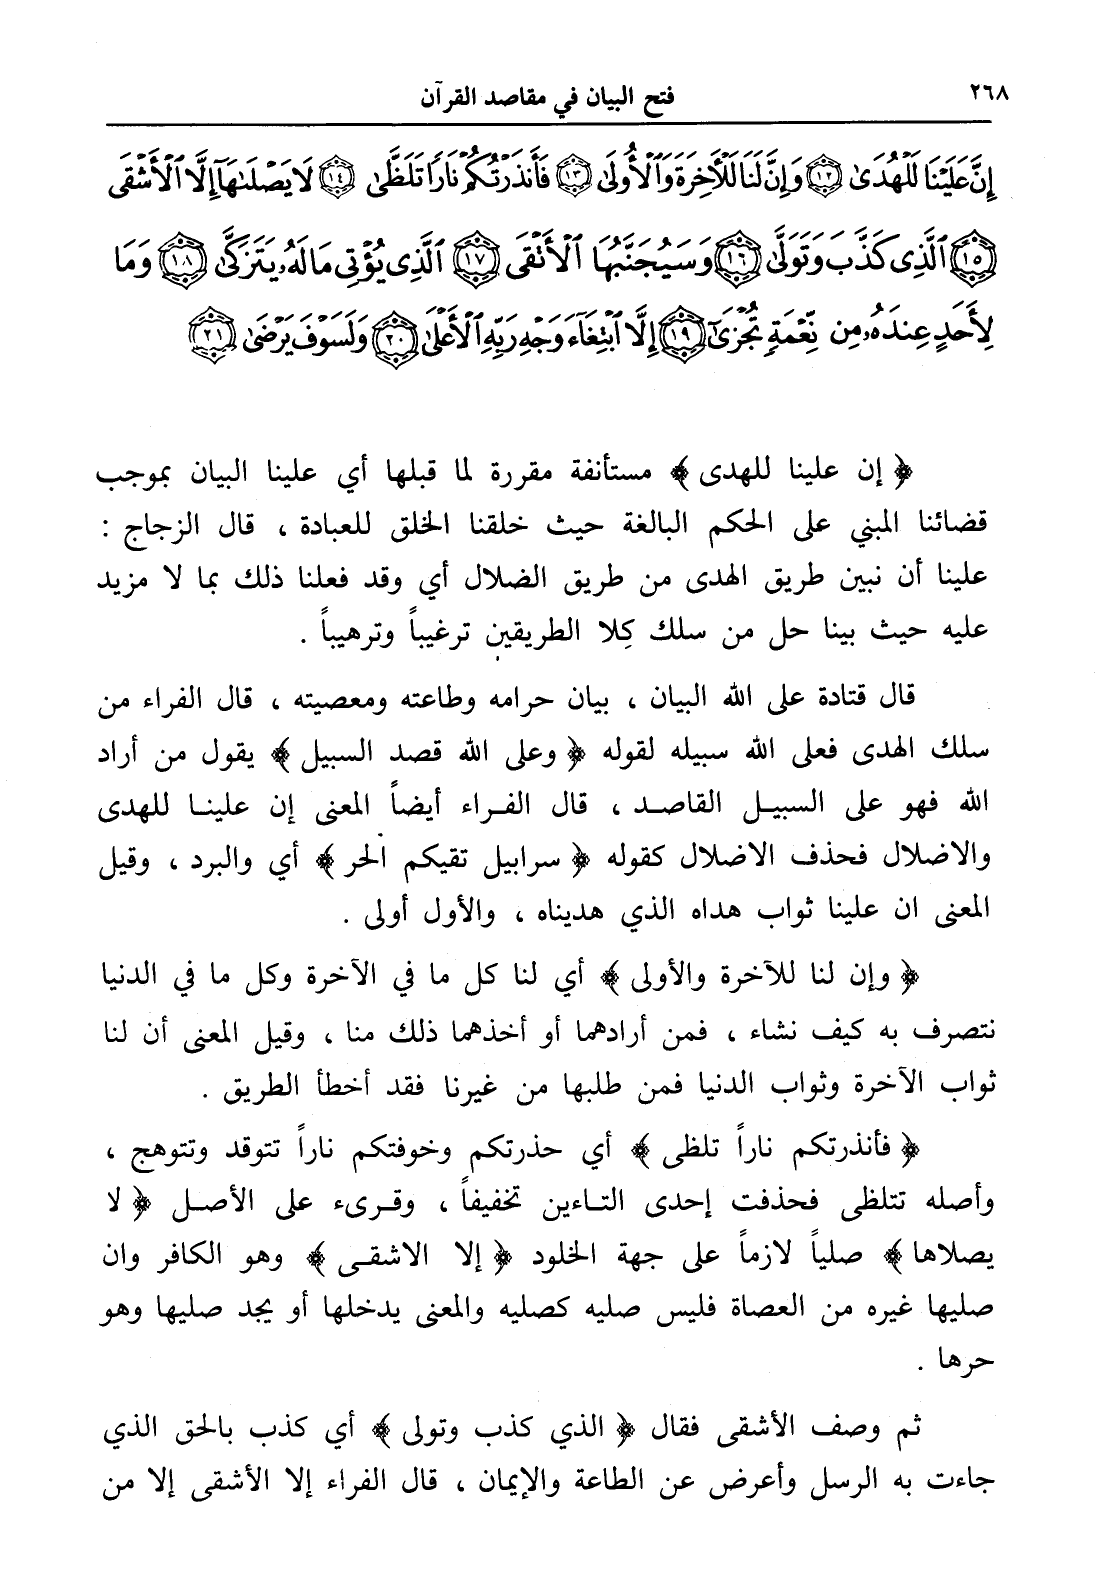 ٢٦٨
فتح البيان في مقاصد القرآن
إِنَّ عَلَيْنَا لَلْهُدَىٰ ١٢ وَإِنَّ لَنَا لَلْآخِرَةَ وَالْأُولَىٰ ١٣ فَأَنذَرْتُكُمْ نَارًا تَلَظَّىٰ ١٤ لَا يَصْلَاهَا إِلَّا الْأَشْقَى
١٥ الَّذِي كَذَّبَ وَتَوَلَّىٰ ١٦ وَسَيُجَنَّبُهَا الْأَتْقَى ١٧ الَّذِي يُؤْتِي مَالَهُ يَتَزَكَّىٰ ١٨ وَمَا
لِأَحَدٍ عِندَهُ مِن نِّعْمَةٍ تُجْزَىٰ ١٩ إِلَّا ابْتِغَاءَ وَجْهِ رَبِّهِ الْأَعْلَىٰ ٢٠ وَلَسَوْفَ يَرْضَىٰ ٢١
﴿ إن علينا للهدى ﴾ مستأنفة مقررة لما قبلها أي علينا البيان بموجب
قضائنا المبني على الحكم البالغة حيث خلقنا الخلق للعبادة ، قال الزجاج :
علينا أن نبين طريق الهدى من طريق الضلال أي وقد فعلنا ذلك بما لا مزيد
عليه حيث بينا حل من سلك كِلا الطريقين ترغيباً وترهيباً .
قال قتادة على الله البيان ، بيان حرامه وطاعته ومعصيته ، قال الفراء من
سلك الهدى فعلى الله سبيله لقوله ﴿ وعلى الله قصد السبيل ﴾ يقول من أراد
الله فهو على السبيل القاصد ، قال الفراء أيضاً المعنى إن علينا للهدى
والاضلال فحذف الاضلال كقوله ﴿ سرابيل تقيكم الحر ﴾ أي والبرد ، وقيل
المعنى ان علينا ثواب هداه الذي هديناه ، والأول أولى .
﴿ وإن لنا للآخرة والأولى ﴾ أي لنا كل ما في الآخرة وكل ما في الدنيا
نتصرف به كيف نشاء ، فمن أرادهما أو أخذهما ذلك منا ، وقيل المعنى أن لنا
ثواب الآخرة وثواب الدنيا فمن طلبها من غيرنا فقد أخطأ الطريق .
﴿ فأنذرتكم ناراً تلظى ﴾ أي حذرتكم وخوفتكم ناراً تتوقد وتتوهج ،
وأصله تتلظى فحذفت إحدى التاءين تخفيفاً ، وقرىء على الأصل ﴿ لا
يصلاها ﴾ صلياً لازماً على جهة الخلود ﴿ إلا الاشقى ﴾ وهو الكافر وان
صليها غيره من العصاة فليس صليه كصليه والمعنى يدخلها أو يجد صليها وهو
حرها .
ثم وصف الأشقى فقال ﴿ الذي كذب وتولى ﴾ أي كذب بالحق الذي
جاءت به الرسل وأعرض عن الطاعة والإيمان ، قال الفراء إلا الأشقى إلا من